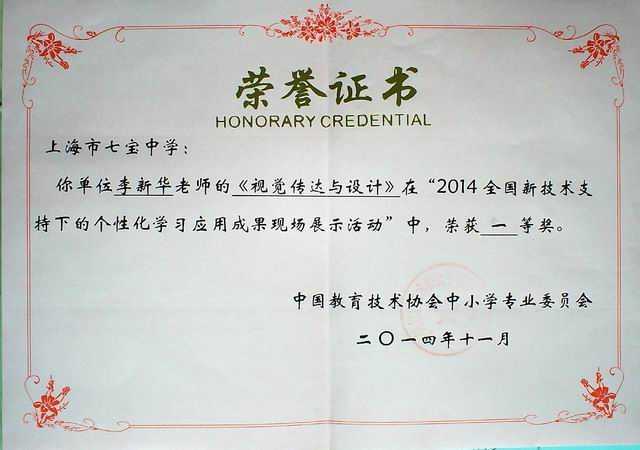 荣誉证书
HONORARY CREDENTIAL
上海市七宝中学：
你单位李新华老师的《视觉传达与设计》在“2014全国新技术支
持下的个性化学习应用成果现场展示活动”中，荣获 一 等奖。
中国教育技术协会中小学专业委员会
二〇一四年十一月